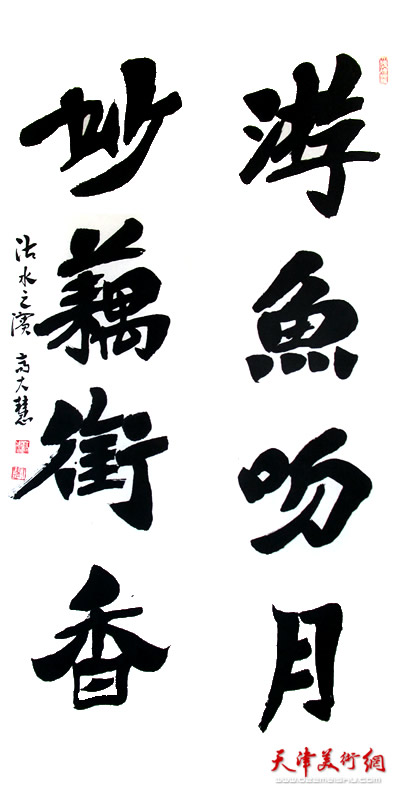 游魚吻月
妙藕銜香
沽水之濱 高大慧
天津美術網